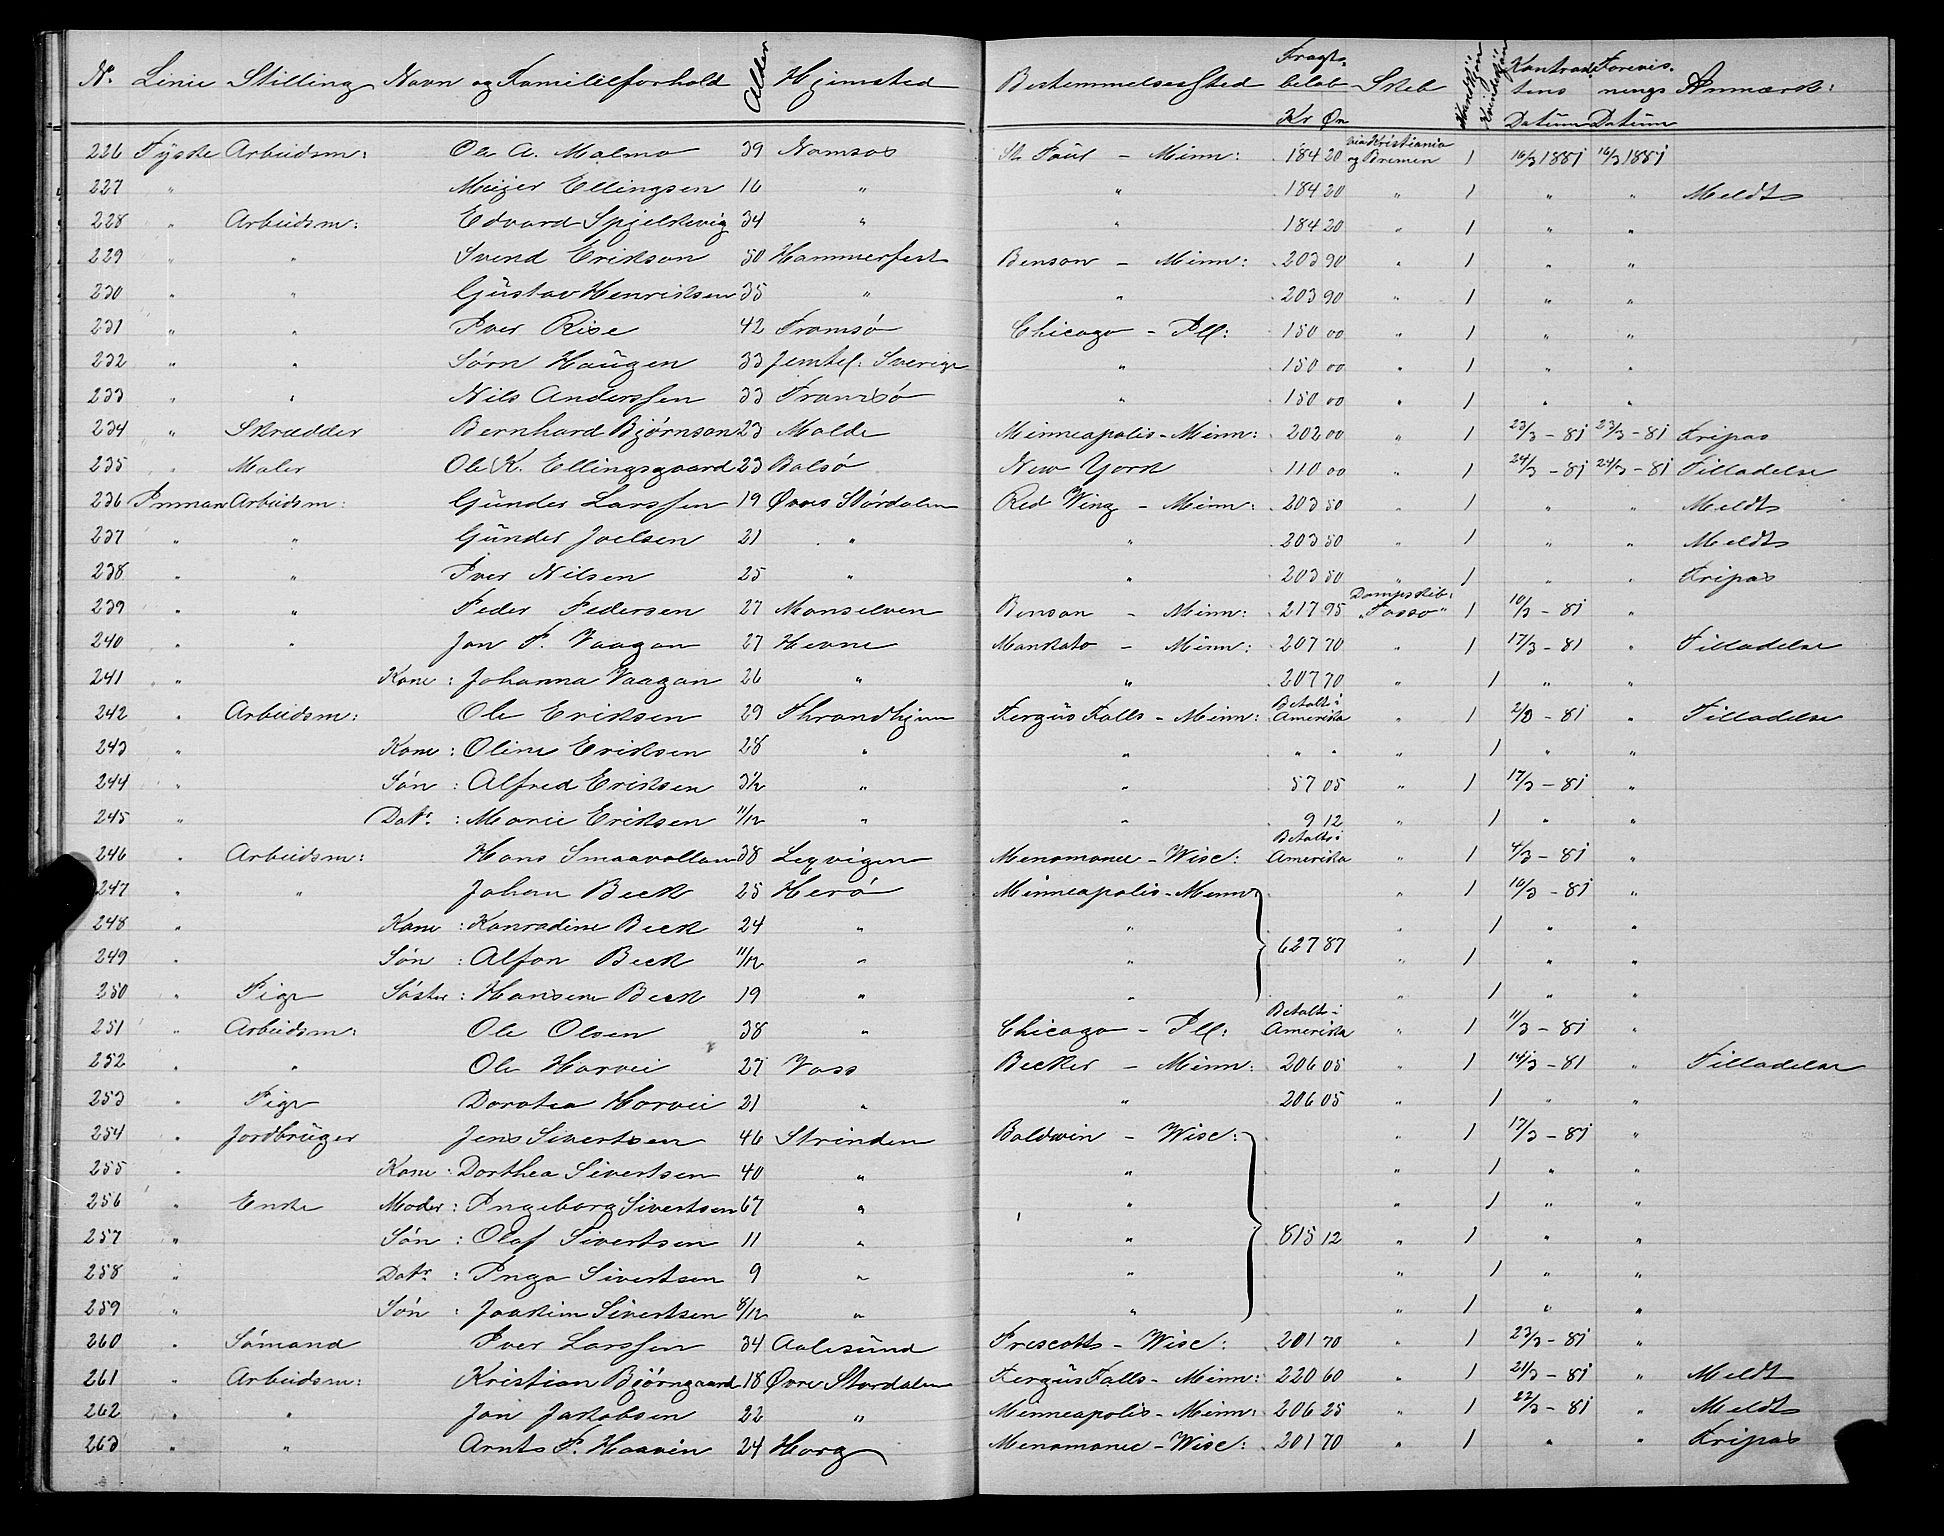 No. Linie Stilling Navn og Familieforhold Alder Hjemsted Bestemmelsessted Fragtbeløb Kr Ør Skib Mandkjön Kvindekjön Kontraktens Datum Forevisnings Datum Anmærk:
226 Tyske Arbeidsm: Ole A. Malmo 39 Namsos St. Paul - Minn: 184 20 via Kristiania og Bremen 1 16/3 1881 16/3 1881
227 " Meijer Ellingsen 16 " " 184 20 " 1 " " Meldt
228 " Arbeidsm: Edvard Spjelkevig 34 " " 184 20 " 1 " "
229 " " Svend Erikson 50 Hammerfest Benson - Minn: 203 90 " 1 " "
230 " " Gustav Henriksen 35 " " 203 90 " 1 " "
231 " " Iver Rise 42 Tromsö Chicago - Ill: 150 00 " 1 " "
232 " " Sörn Haugen 33 Jemtel: Sverige " 150 00 " 1 " "
233 " " Nils Anderssen 33 Tromsö " 150 00 " 1 " "
234 " Skrædder Bernhard Bjørnson 23 Molde Minneapolis - Minn: 202 00 " 1 23/3 - 81 23/3 - 81 Fripas
235 " Maler Ole K. Ellingsgaard 23 Bolsö New York 110 00 " 1 24/3 - 81 24/3 - 81 Tilladelse
236 Inman Arbeidsm: Gunder Larssen 19 Øvre Stördalen Red Wing - Minn: 203 50 " 1 " " Meldt
237 " " Gunder Joelsen 21 " " 203 50 " 1 " " Meldt
238 " " Iver Nilsen 25 " " 203 50 " 1 " " Fripas
239 " " Peder Pedersen 27 Monselven Benson - Minn: 217 95 Dampskib: "Tasso" 1 10/3 - 81 "
240 " " Jon P. Vaagan 27 Hevne Mankato - Minn: 207 70 " 1 17/3 - 81 " Tilladelse
241 " Kone: Johanna Vaagan 26 " " 207 70 " 1 " "
242 " Arbeidsm: Ole Eriksen 29 Throndhjem Fergus Falls - Minn: Betalt i Amerika " 1 2/3 - 81 " Tilladelse
243 " Kone: Oline Eriksen 28 " " " " " 1 " "
244 " Sön: Alfred Eriksen 3½ " " 57 05 " 1 17/3 - 81 "
245 " Datr: Marie Eriksen 11/12 " " 9 12 " 1 " "
246 " Arbeidsm: Hans Smaavollan 38 Legvigen Menomonee - Wisc: Betalt i Amerika " 1 4/3 - 81 "
247 " " Johan Beck 25 Herö Minneapolis - Minn " 1 16/3 - 81 "
248 " Kone: Konradine Beck 24 " " 627 87 " 1 " "
249 " Sön: Alfon Beck 11/12 " " " 1 " "
250 " Pige Söster: Hansene Beck 19 " " " 1 " "
251 " Arbeidsm: Ole Olsen 38 " Chicago - Ill: Betalt i Amerika " 1 11/3 - 81 "
252 " " Ole Horvei 27 Voss Becker - Minn: 206 05 " 1 14/3 - 81 " Tilladelse
253 " Pige Dorotea Horvei 21 " " 206 05 " 1 " "
254 " Jordbruger Jens Sivertsen 46 Strinden Baldwin - Wisc: " 1 17/3 - 81 "
255 " Kone: Dorthea Sivertsen 40 " " " 1 " "
256 " Enke Moder: Ingeborg Sivertsen 67 " " " 1 " "
257 " Sön: Olaf Sivertsen 11 " " 815 12 " 1 " "
258 " Datr: Inga Sivertsen 9 " " " 1 " "
259 " Sön: Joakim Sivertsen 8/12 " " " 1 " "
260 " Sömand Iver Larssen 34 Aalesund Prescotts - Wisc: 201 70 " 1 23/3 - 81 "
261 " Arbeidsm: Kristian Bjørngaard 18 Øvre Stordalen Fergus Falls - Minn: 220 60 " 1 21/3 - 81 " Meldt
262 " " Jon Jakobsen 22 " Minneapolis - Minn: 206 25 " 1 22/3 - 81 " Meldt
263 " " Arnt P. Haavin 24 Horg Menomonee - Wisc: 201 70 " 1 " " Fripas